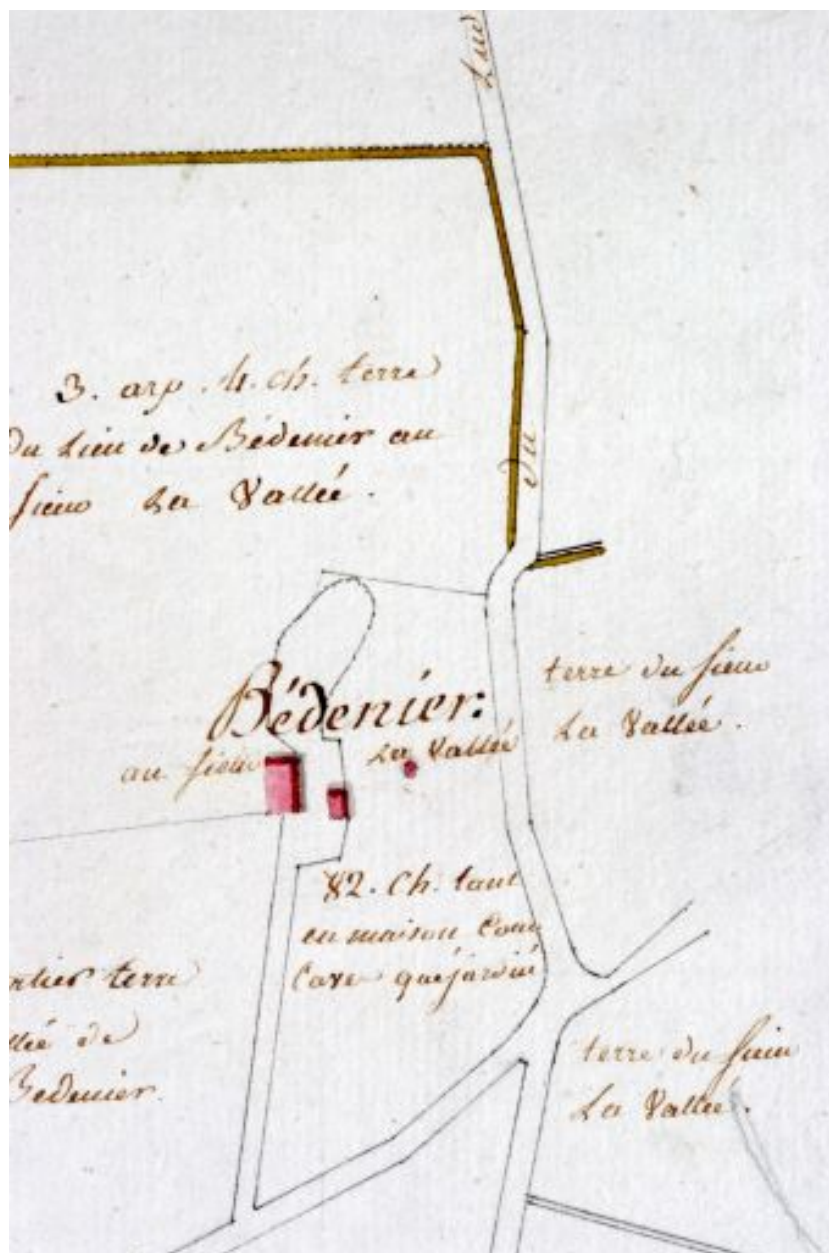 Lud
3. arp. 4. ch. terre
Du Lieu de Bédenier au
sieur La Vallée.
du
Bédenier:
au sieur La Vallée
terre du sieur
La Vallée.
82. Ch. tant
en maison Cour
Cave que jardin
rtier terre
llée de
Bedenier.
terre du sieur
La Vallée.